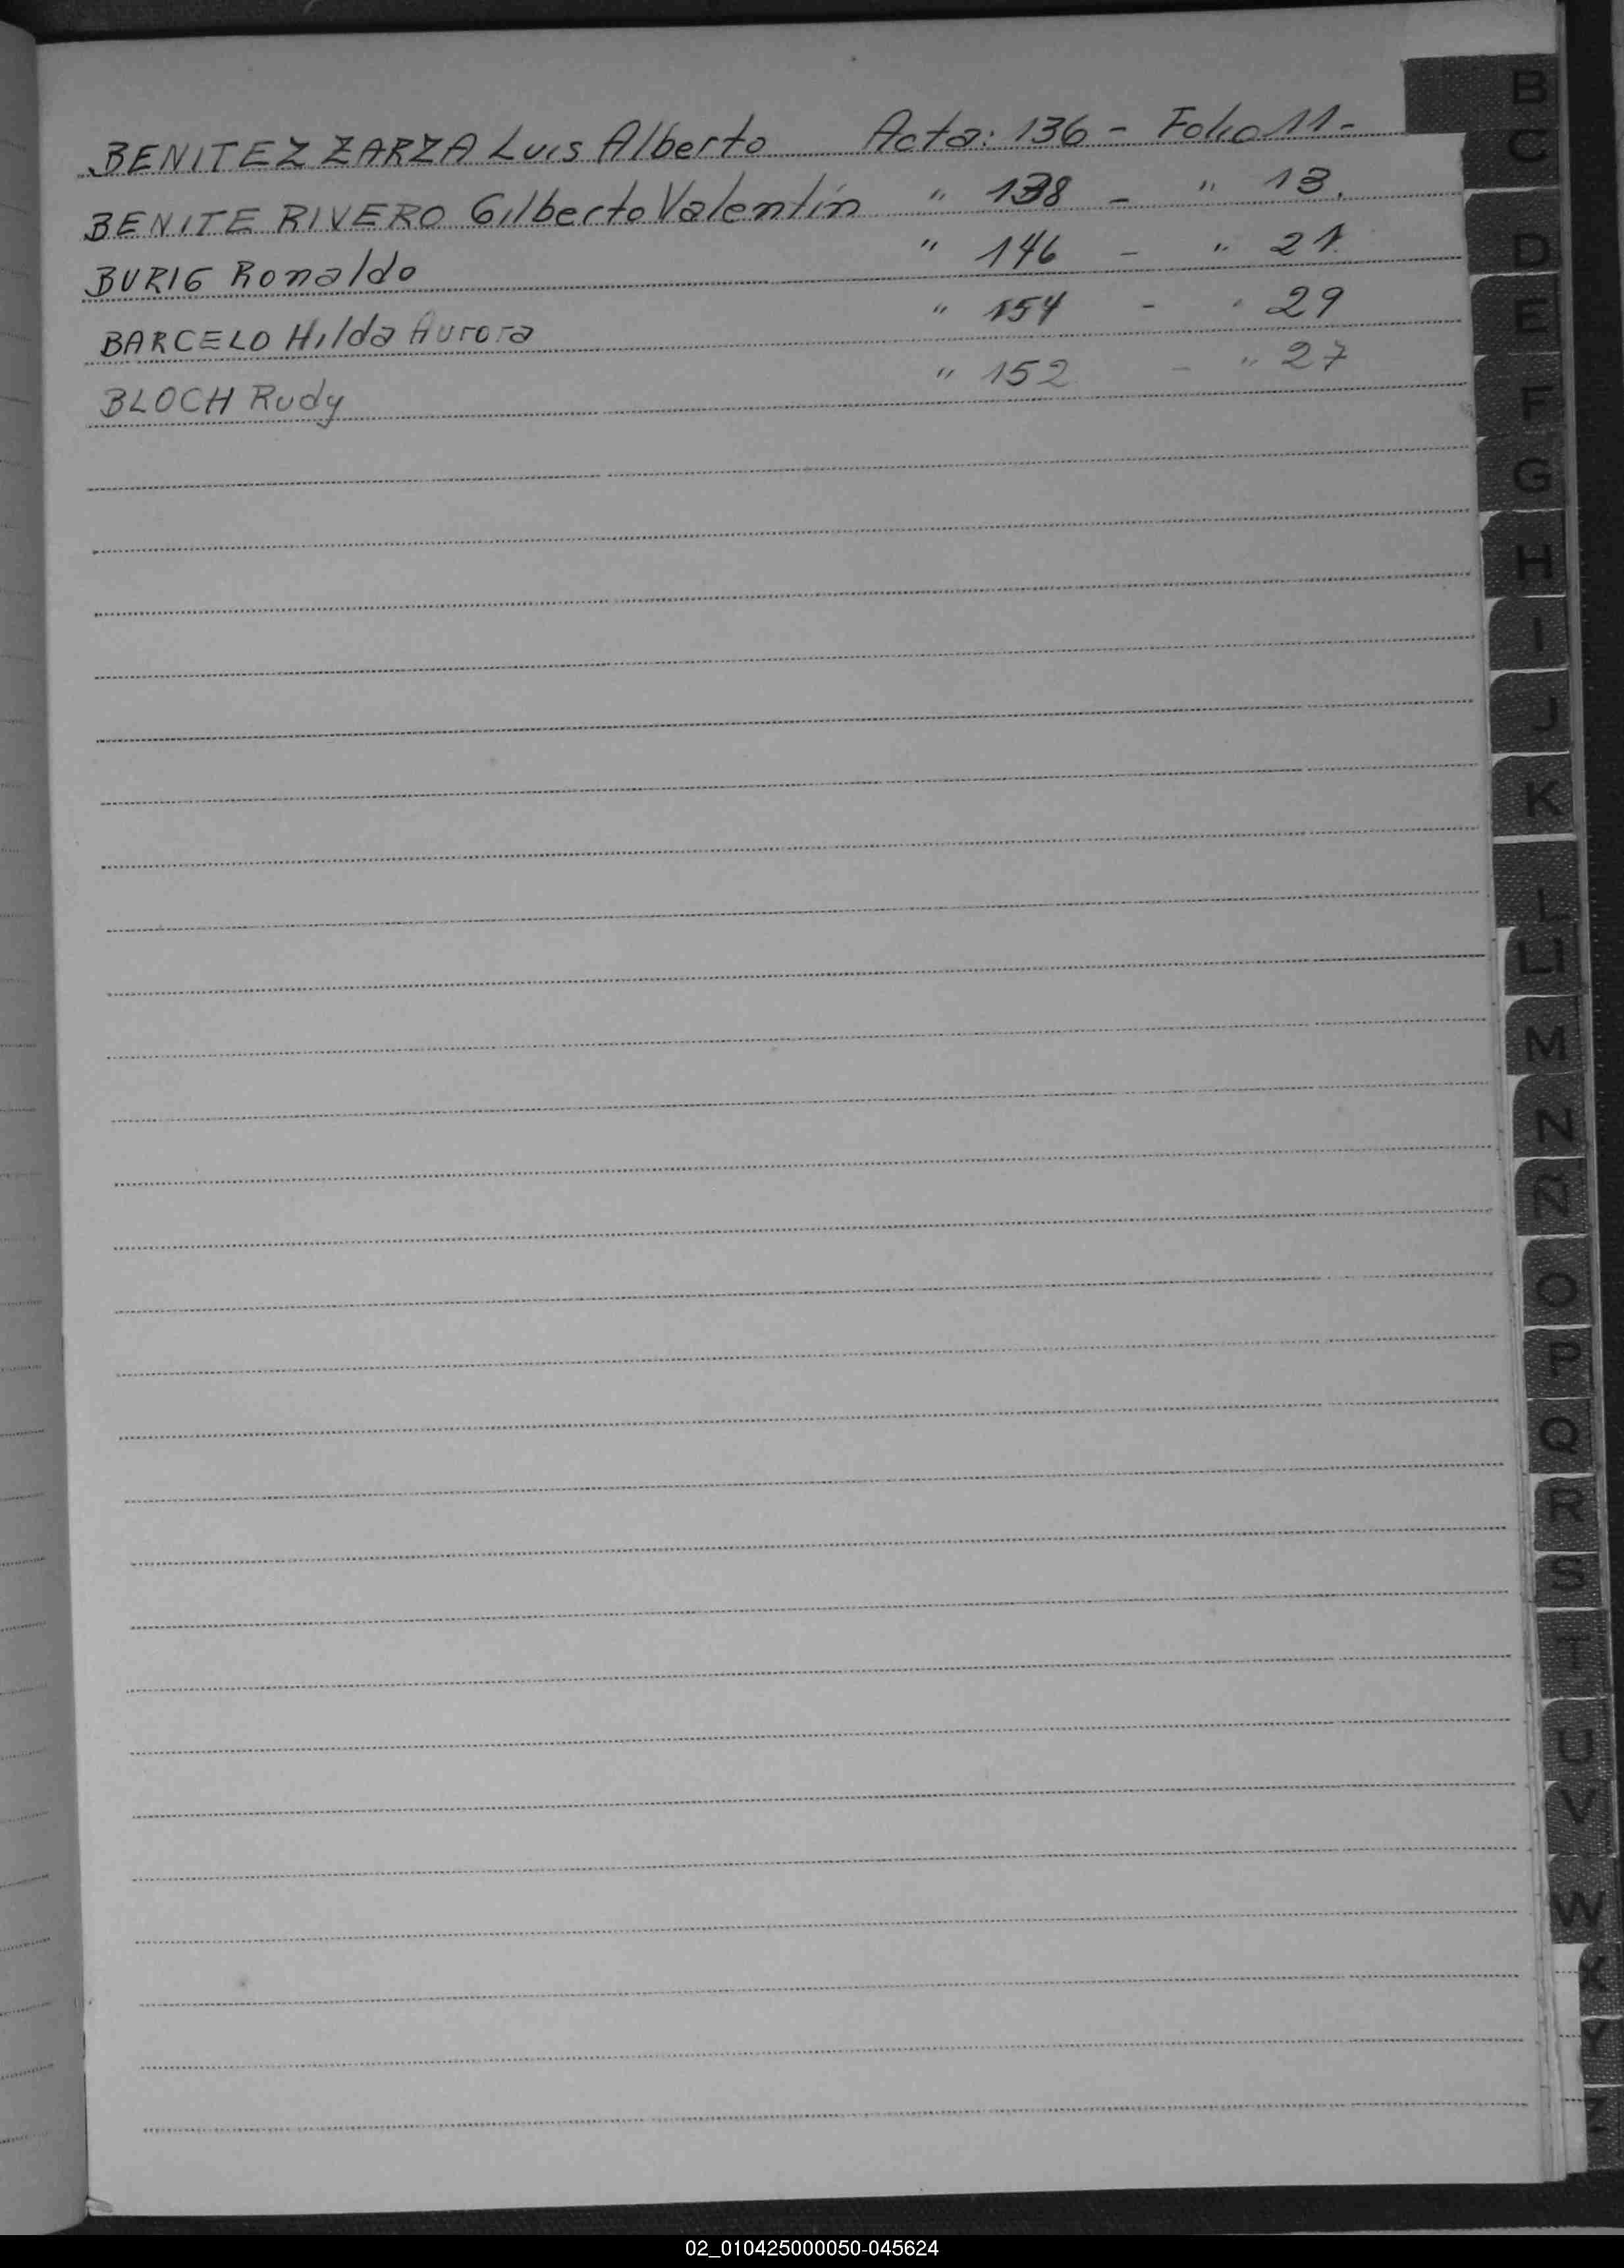 BENITEZ ZARZA Luis Alberto Acta: 136 - Folio 11-
BENITE RIVERO Gilberto Valentín " 138 - " 13.
BURIG Ronaldo " 146 - " 21
BARCELO Hilda Aurora " 154 - " 29
BLOCH Rudy " 152 - " 27
B
C
D
E
F
G
H
I
J
K
L
LL
M
N
Ñ
O
P
Q
R
S
T
U
V
W
X
Y
Z
02_010425000050-045624